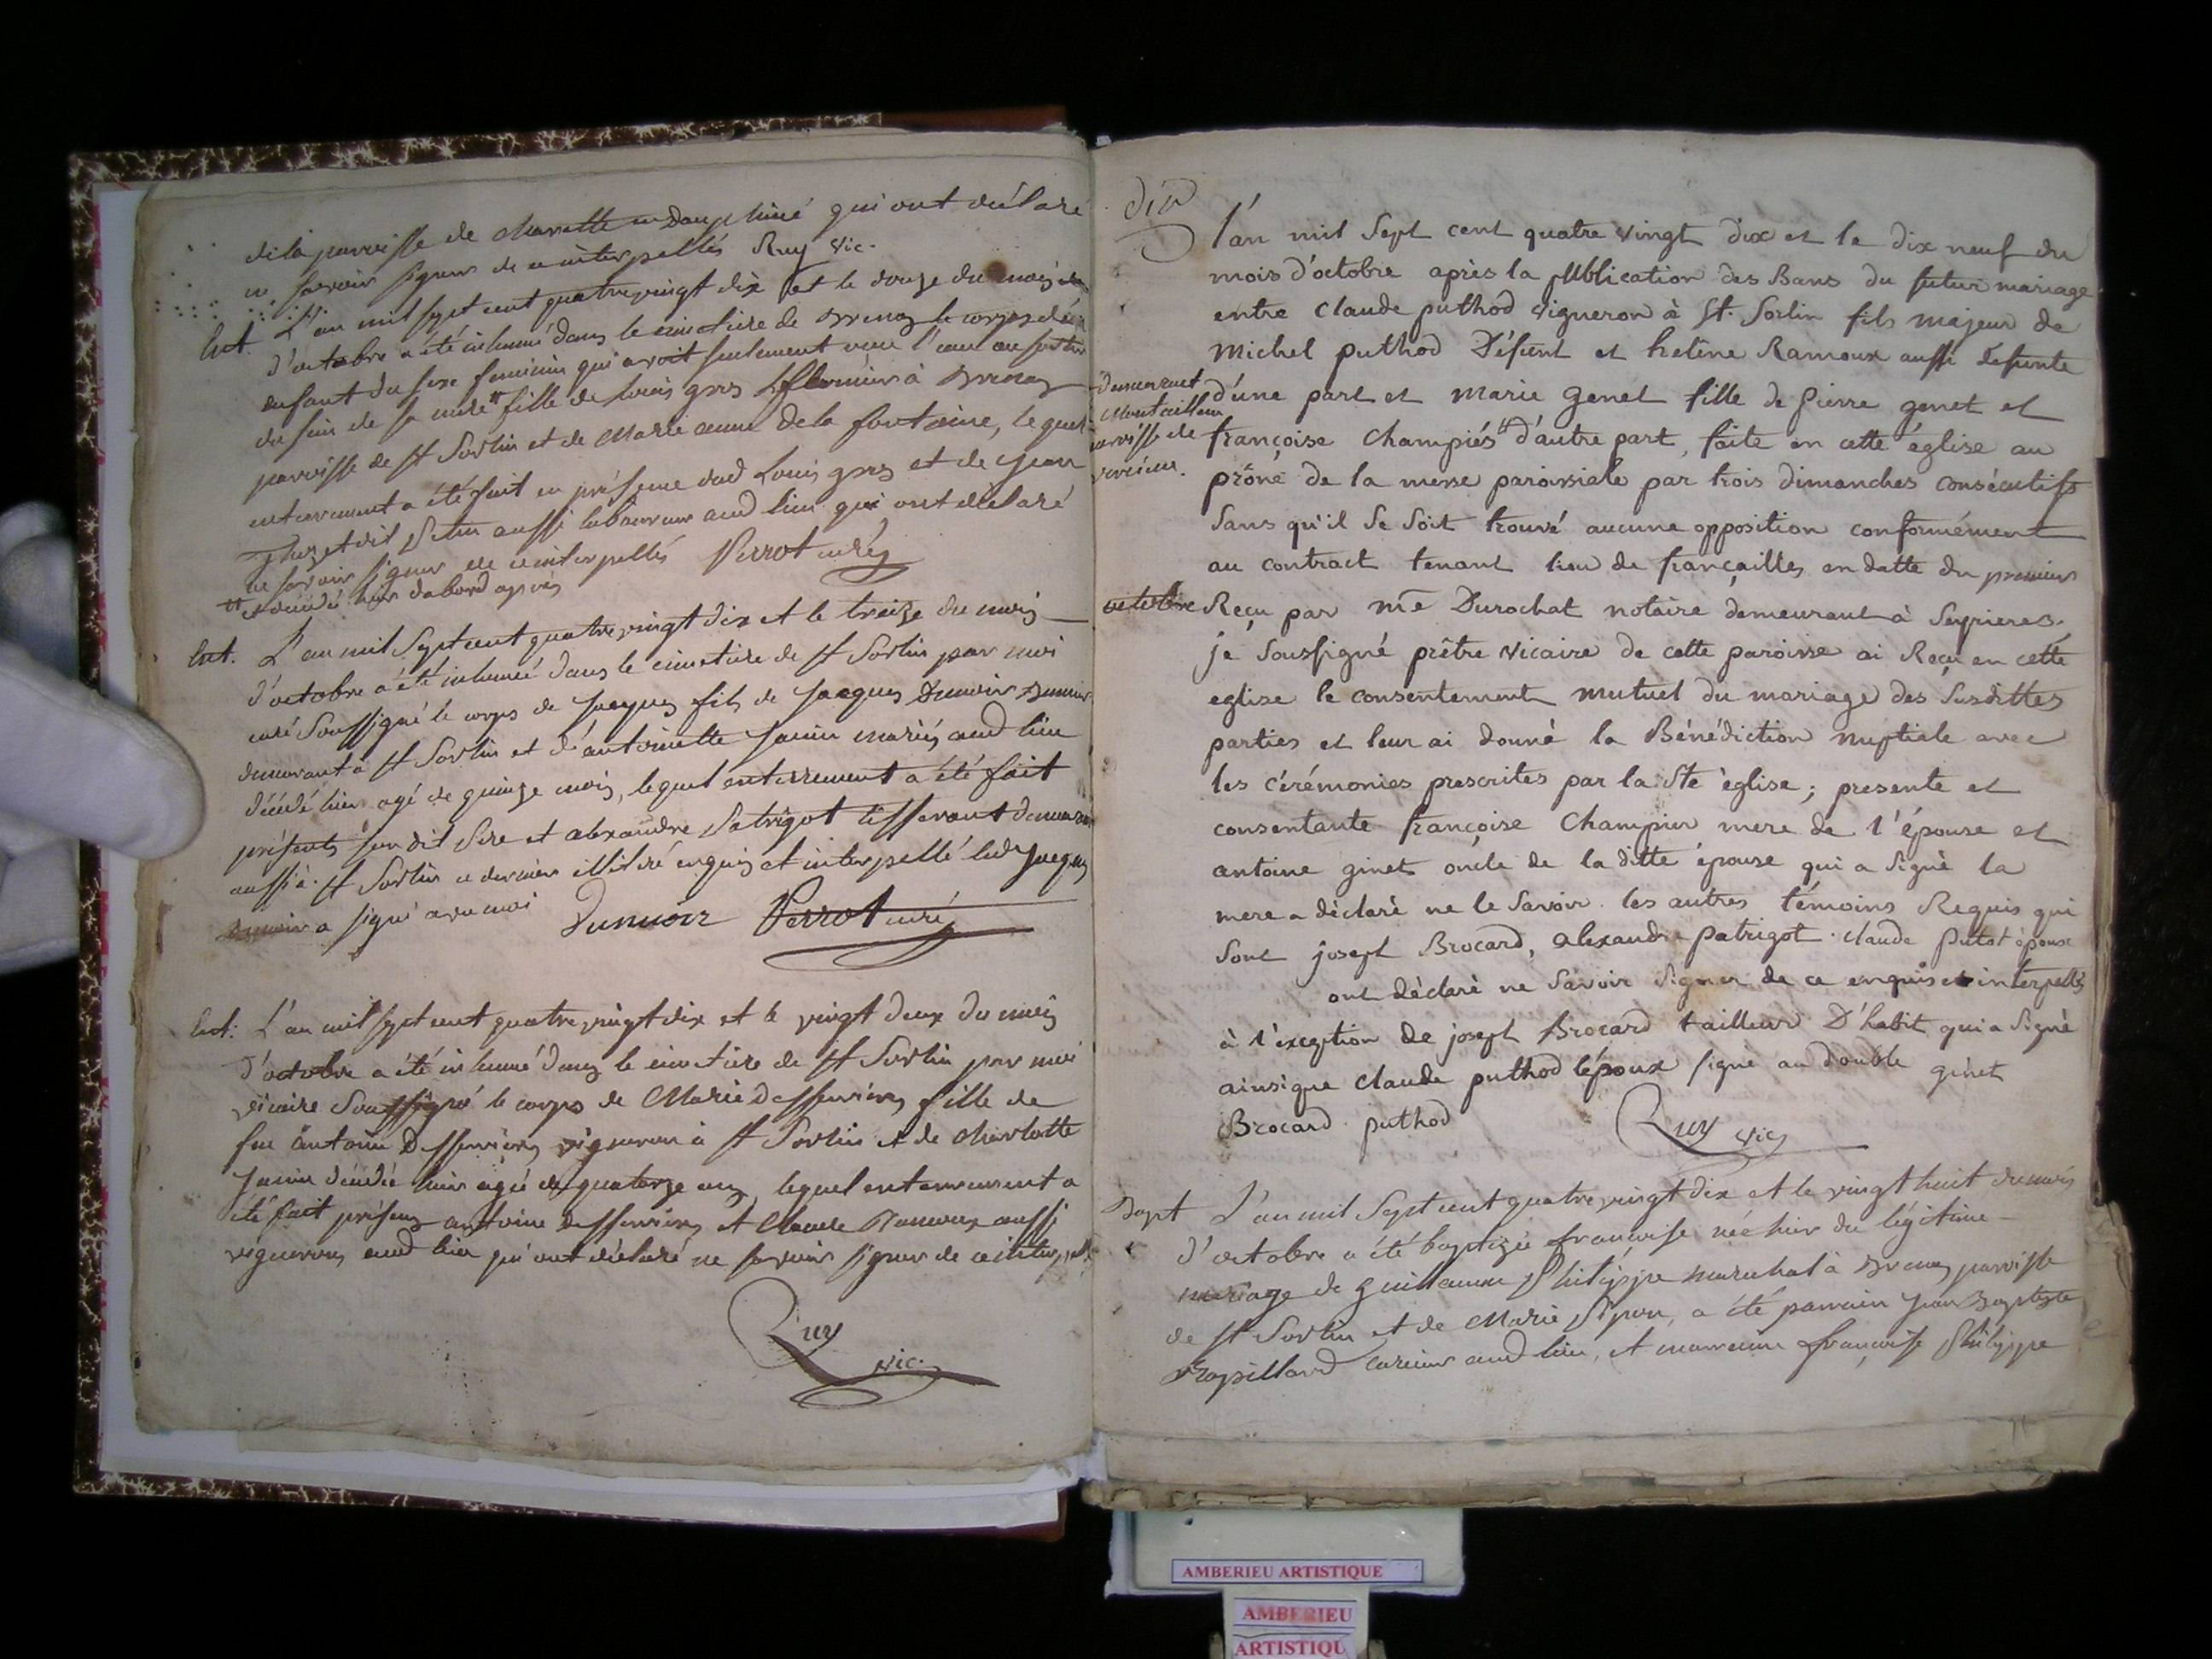 de la parroisse de charette en Dauphiné qui ont déclaré
ne savoir signer de ce interpellés Ruy vic.
Ent. L'an mil sept cent quatre vingt dix et le douze du mois
d'octobre a été inhumé dans le cimetiere de le corps d'un
enfant du sexe feminin qui avoit seulement reçu l'eau au sortir
du sein de sa mere # fille de Louis gros à
parroisse de St Sorlin et de Marie anne dela fontaine, lequel
enterrement a été fait en présence dud Louis gros et de jean
dit aussi laboureur aud lieu qui ont déclaré
ne savoir signer de ce interpellés Perrot curé
# et décédé hier dabord après
Ent. L'an mil Sept cent quatre vingt dix et le treize du mois
d'octobre a été inhumé dans le cimetiere de St Sorlin par moi
curé Soussigné le corps de Jacques fils de Jacques Dunoir
demeurant à St Sorlin et d'antoinette Janin mariés aud lieu
décédé hier agé de quinze mois, lequel enterrement a été fait
présents son dit Pere et alexandre Patrigot tisserant demeurant
aussi à St Sorlin ce dernier illitéré enquis et interpellé led Jacques
Dunoir a signé avec moi Dunoir Perrot curé
Ent: L'an mil sept cent quatre vingt dix et le vingt deux du mois
d'octobre a été inhumé dans le cimetiere de St Sorlin par moi
vicaire Soussigné le corps de Marie Desserrieres fille de
feu antoine Desserrieres vigneron à St Sorlin et de charlotte
Janin décédée hier agée de quatorze ans, lequel enterrement a
été fait présens antoine desserrieres et Claude Ramoux aussi
vignerons aud lieu qui ont déclaré ne savoir signer de ce interpellés
Ruy
vic.
dix
l'an mil Sept cent quatre vingt dix et le dix neuf du
mois d'octobre après la publication des Bans du futur mariage
entre Claude puthod vigneron à St. Sorlin fils majeur de
Michel puthod Défunt et heléne Ramoux aussi defunte
d'une part et Marie genet fille de pierre genet et
demeurant
Montaillou
parroisse de
françoise Champiés # d'autre part, faite en cette église au
prône de la messe paroissiale par trois dimanches consécutifs
Sans qu'il Se Soit trouvé aucune opposition conformément
au contract tenant lieu de françailles en datte du premier
octobre Reçu par me Durochat notaire demeurant à Seyrieres
je Soussigné prêtre vicaire de cette paroisse ai Reçu en cette
eglise le consentement mutuel du mariage des Susdittes
parties et leur ai donné la Bénédiction nuptiale avec
les cérémonies prescrites par la Ste église; presente et
consentante françoise Champier mere de l'épouse et
antoine ginet oncle de la ditte épouse qui a Signé la
mere a déclaré ne le Savoir. les autres témoins Requis qui
Sont joseph Brocard, alexandre patrigot. claude putot époux
ont déclaré ne Savoir Signer de ce enquis et interpellés
à l'exception de joseph Brocard tailleur D'habit qui a Signé
ainsi que Claude puthod l'époux signé au double ginet
Brocard puthod Ruy vic
Bapt L'an mil Sept cent quatre vingt dix et le vingt huit du mois
d'octobre a été baptisée françoise née hier du légitime
mariage de guillaume Philippe marechal à parroisse
de St Sorlin et de Marie Pipon, a été parrain Jean Baptiste
Rapillard aud lieu, et marraine françoise Philippe
AMBERIEU ARTISTIQUE
AMBERIEU
ARTISTIQU